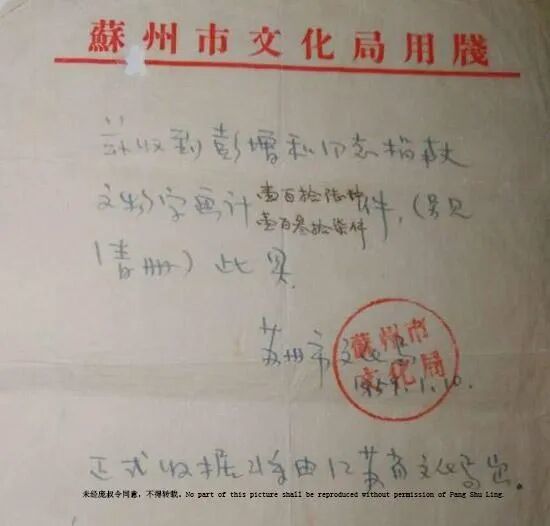 蘇州市文化局用牋
兹收到彭增和同志捐献
文物字画计壹百叁拾柒件件,(另见
清册)此具.
苏州市文化局
蘇州市
文化局
1959.1.10.
正式收据将由江苏省文化局出.
未经庞权令同意,不得转载. No part of this picture shall be reproduced without permission of Pang Shu Ling.